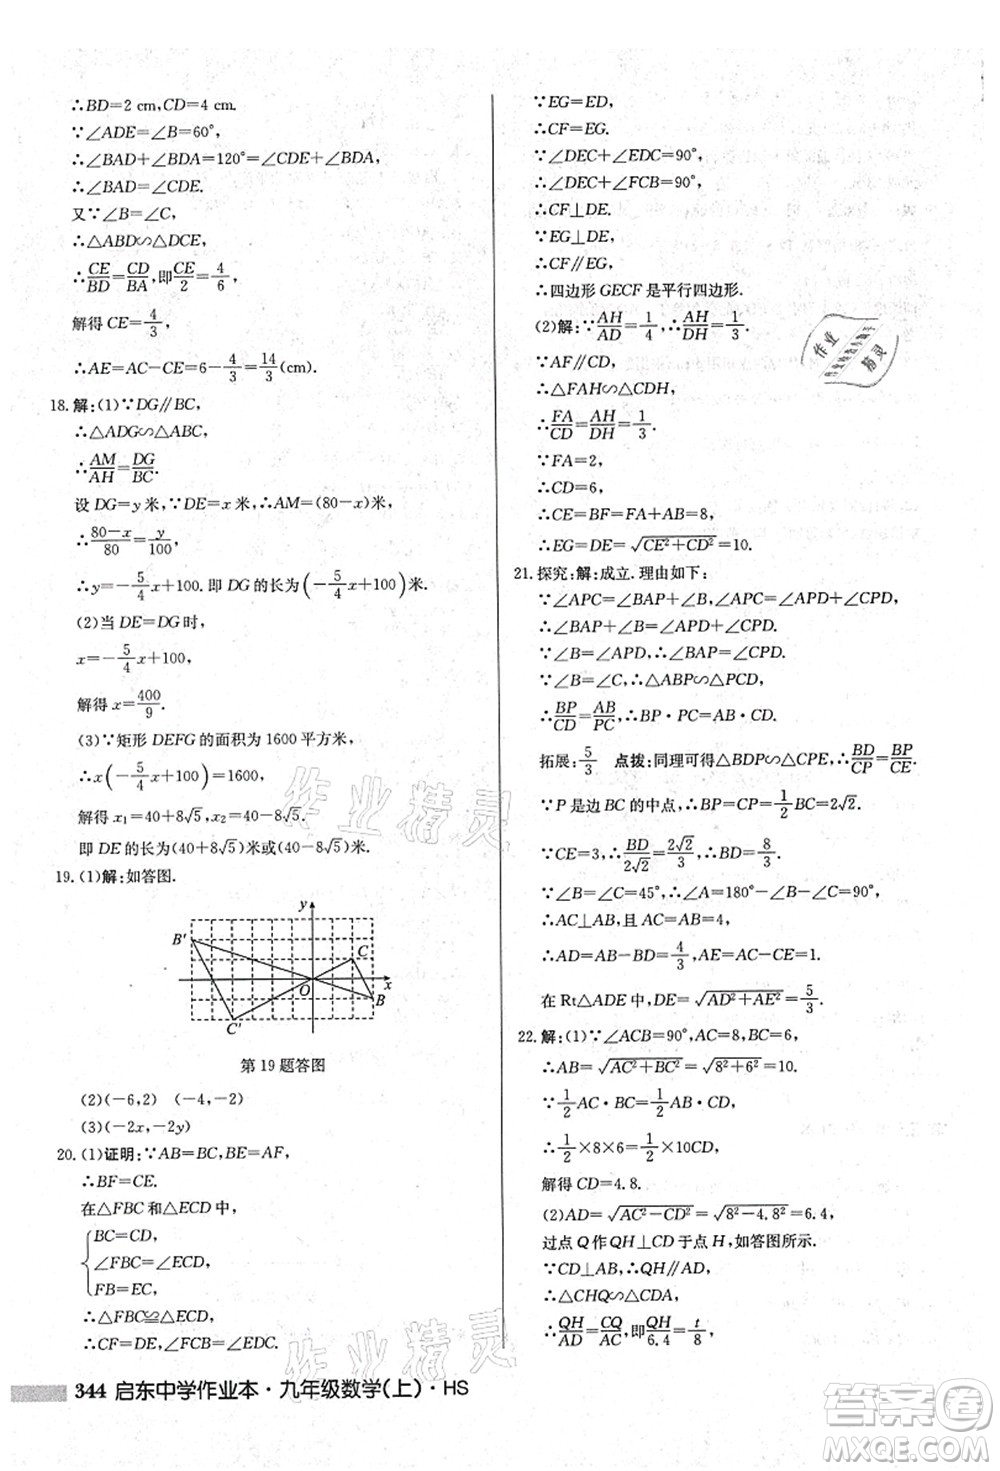 ∴BD=2 cm,CD=4 cm.
∵∠ADE=∠B=60°,
∴∠BAD+∠BDA=120°=∠CDE+∠BDA.
∴∠BAD=∠CDE.
又∵∠B=∠C,
∴△ABD∽△DCE.
∴CE/BD=CD/BA,即CE/2=4/6,
解得 CE=4/3,
∴AE=AC-CE=6-4/3=14/3(cm).
18. 解:(1)∵DG∥BC,
∴△ADG∽△ABC.
∴AM/AH=DG/BC.
设 DG=y 米,∵DE=x 米,∴AM=(80-x)米,
∴(80-x)/80=y/100,
∴y=-5/4x+100.即 DG 的长为(-5/4x+100)米.
(2)当 DE=DG 时,
x=-5/4x+100,
解得 x=400/9.
(3)∵矩形 DEFG 的面积为 1600 平方米,
∴x(-5/4x+100)=1600,
解得 x₁=40+8√5,x₂=40-8√5.
即 DE 的长为(40+8√5)米或(40-8√5)米.
19. (1)解:如答图.
y
B′
C
O
x
B
C′
第 19 题答图
(2)(-6,2) (-4,-2)
(3)(-2x,-2y)
20. (1)证明:∵AB=BC,BE=AF,
∴BF=CE.
在△FBC 和△ECD 中,
BC=CD,
∠B=∠DCE,
FB=EC,
∴△FBC≌△ECD.
∴CF=DE,∠FCB=∠EDC.
∵EG=ED,
∴CF=EG.
∵∠DEC+∠EDC=90°,
∴∠DEC+∠FCB=90°,
∴CF⊥DE.
∵EG⊥DE,
∴CF∥EG,
∴四边形 GECF 是平行四边形.
(2)解:∵AH/AD=1/4,∴AH/DH=1/3.
∵AF∥CD,
∴△FAH∽△CDH,
∴FA/CD=AH/DH=1/3.
∵FA=2,
∴CD=6,
∴CE=BF=FA+AB=8,
∴EG=DE=√(CE²+CD²)=10.
21. 探究:解:成立. 理由如下:
∵∠APC=∠BAP+∠B,∠APC=∠APD+∠CPD,
∴∠BAP+∠B=∠APD+∠CPD.
∵∠B=∠APD,∴∠BAP=∠CPD.
∵∠B=∠C,∴△ABP∽△PCD,
∴BP/CD=AB/PC,∴BP·PC=AB·CD.
拓展:5/3 点拨:同理可得△BDP∽△CPE,∴BD/CP=BP/CE.
∵P 是边 BC 的中点,∴BP=CP=1/2BC=2√2.
∵CE=3,∴BD/2√2=2√2/3,∴BD=8/3.
∵∠B=∠C=45°,∴∠A=180°-∠B-∠C=90°,
∴AC⊥AB,且 AC=AB=4,
∴AD=AB-BD=4/3,AE=AC-CE=1.
在 Rt△ADE 中,DE=√(AD²+AE²)=5/3.
22. 解:(1)∵∠ACB=90°,AC=8,BC=6,
∴AB=√(AC²+BC²)=√(8²+6²)=10.
∵1/2AC·BC=1/2AB·CD,
∴1/2×8×6=1/2×10CD,
解得 CD=4.8.
(2)AD=√(AC²-CD²)=√(8²-4.8²)=6.4,
过点 Q 作 QH⊥CD 于点 H,如答图所示.
∵CD⊥AB,∴QH∥AD,
∴△CHQ∽△CDA,
∴QH/AD=CQ/AC,∴QH/6.4=t/8,
作业精灵
作业精灵
作业
精灵
344 启东中学作业本·九年级数学(上)·HS
答案圈
MXQE.COM